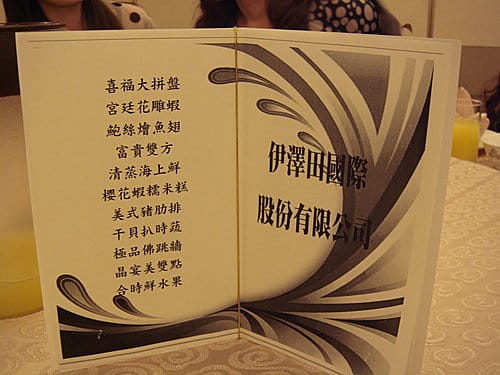 喜福大拼盤
宮廷花雕蝦
鮑絲燴魚翅
富貴雙方
清蒸海上鮮
櫻花蝦糯米糕
美式豬肋排
干貝扒時蔬
極品佛跳牆
晶宴美雙點
合時鮮水果
伊澤田國際
股份有限公司